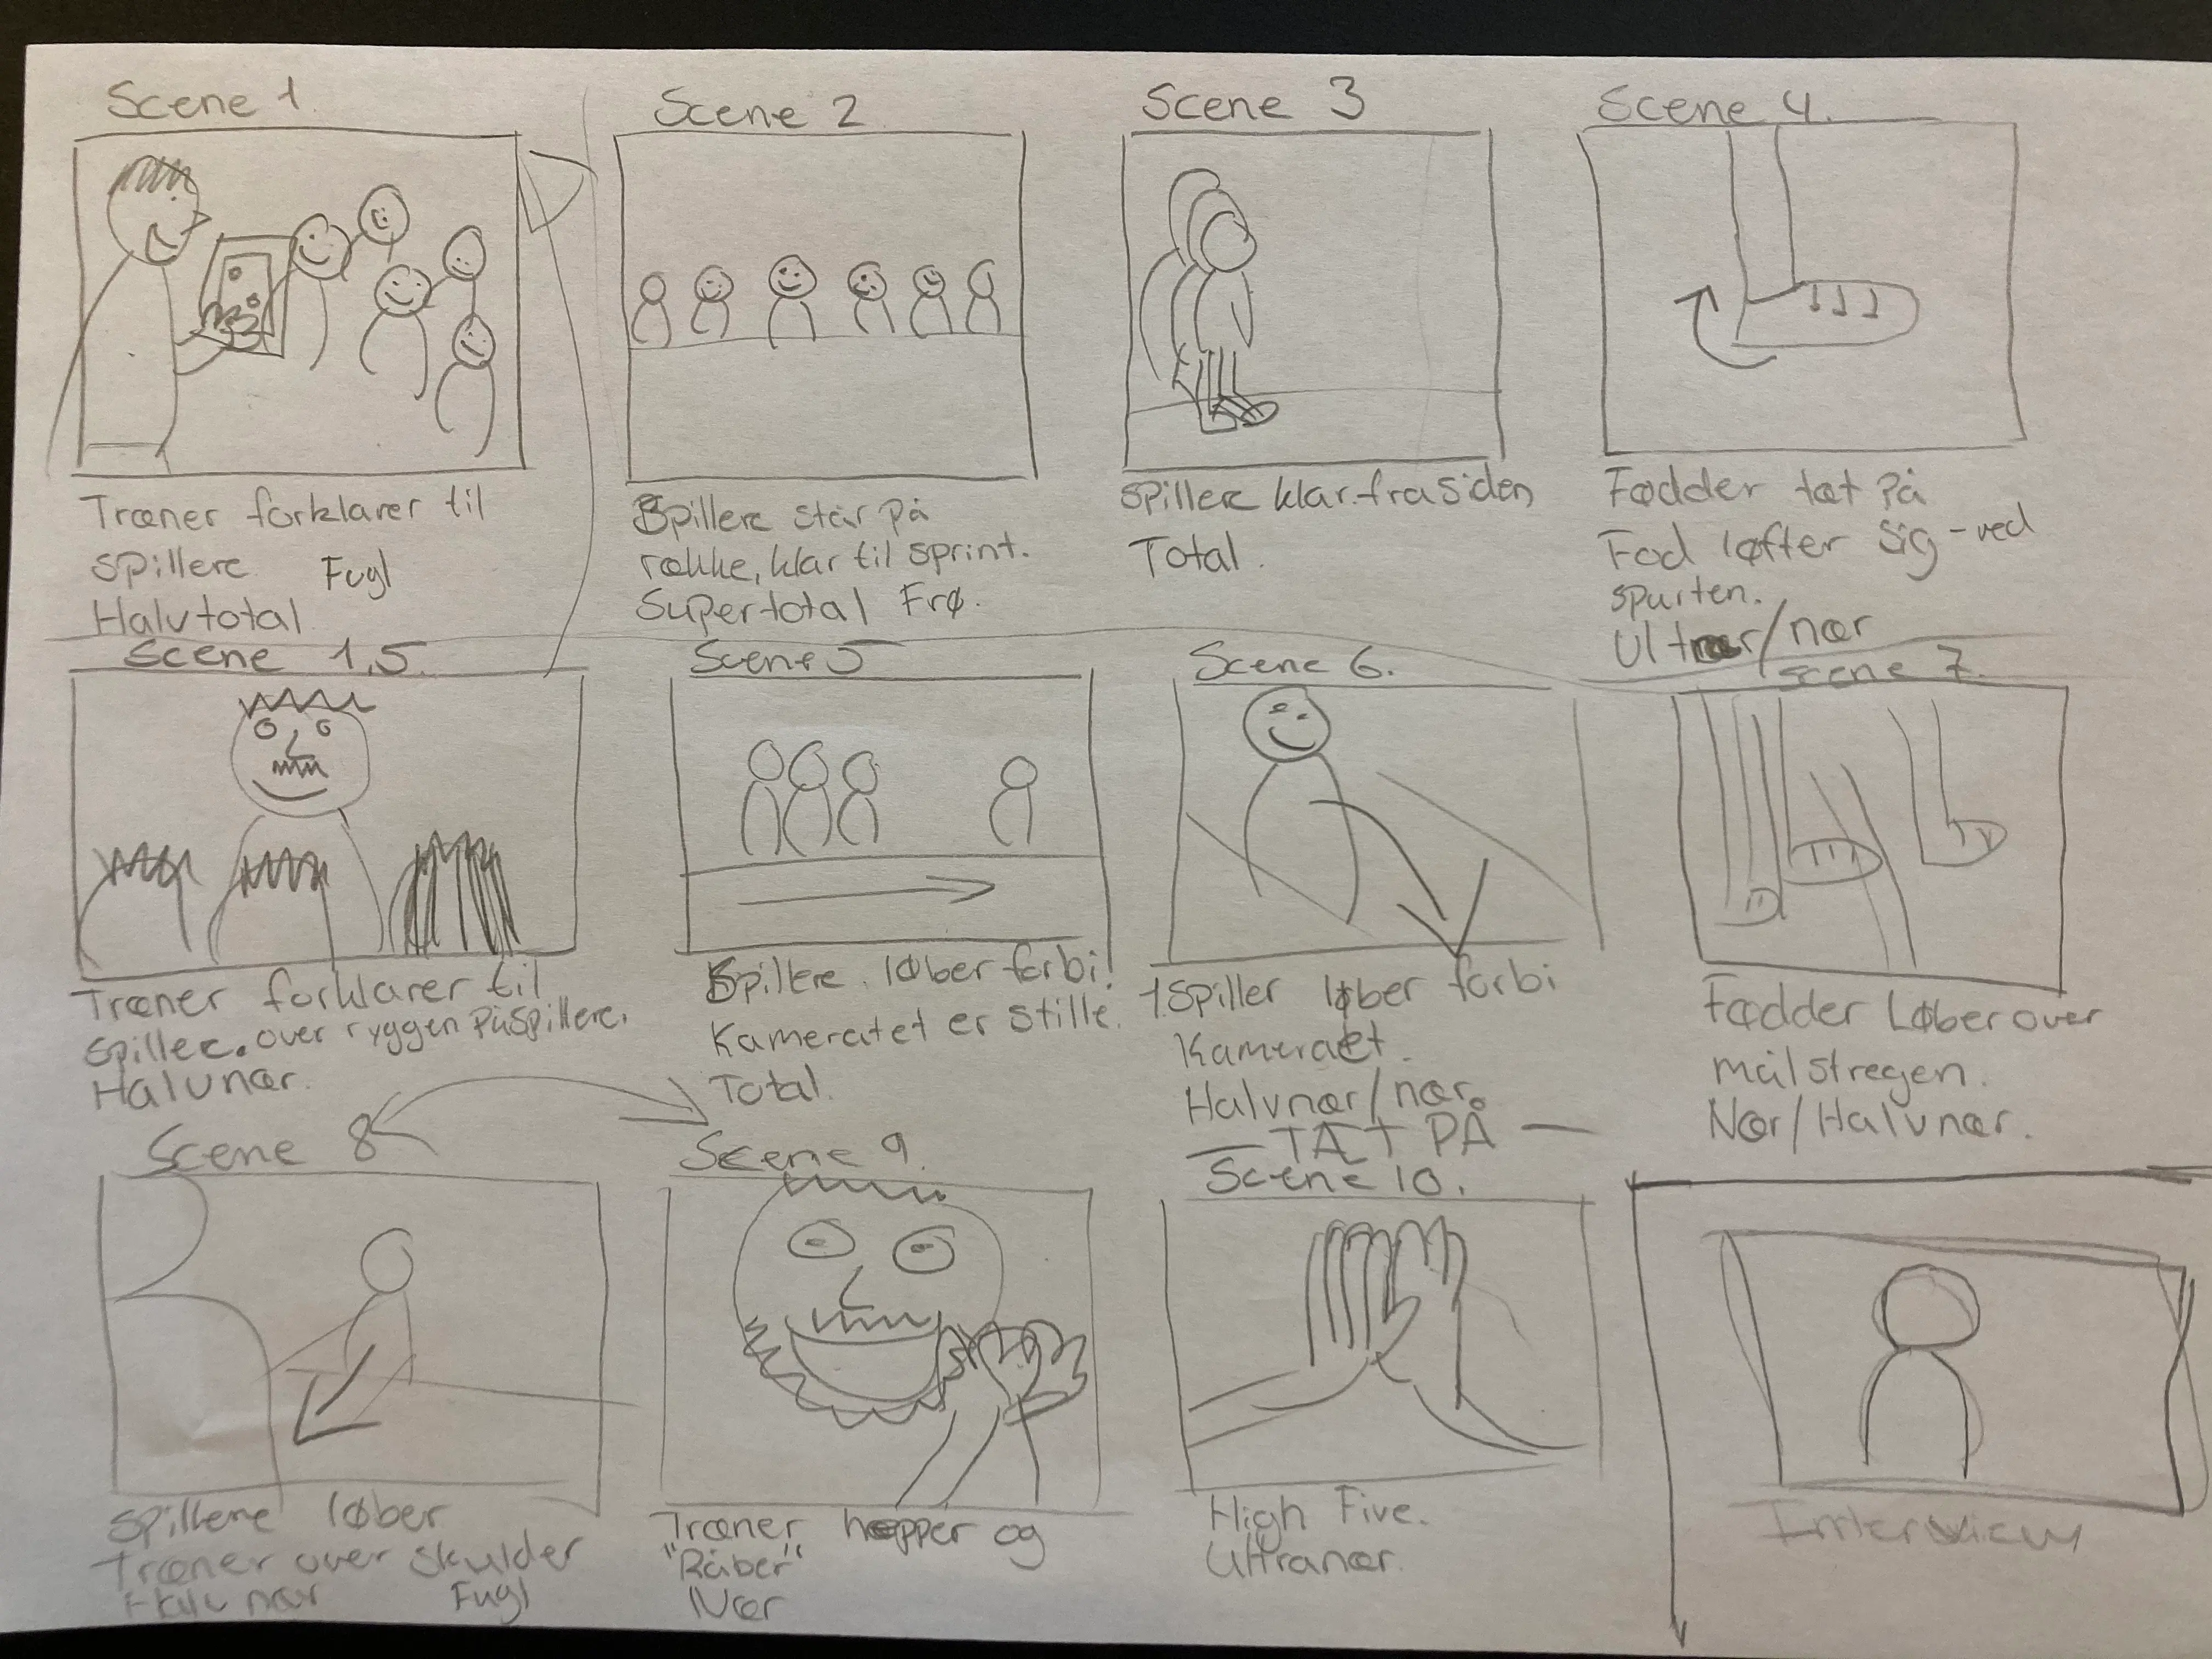 Scene 1.
Træner forklarer til
spillere Fugl
Halvtotal
Scene 2
Spillere står på
række, klar til sprint.
Supertotal Frø.
Scene 3
Spillere klar fra siden
Total.
Scene 4.
Fødder tæt på
Fod løfter sig - ved
spurten.
Ultranær/nær
Scene 1,5.
Træner forklarer til
spillere. over ryggen på spillere.
Halvnær.
Scene 5
Spillere løber forbi!
Kameratet er stille.
Total.
Scene 6.
1 spiller løber forbi
Kameraet.
Halvnær/nær.
— TÆT PÅ —
Scene 7.
Fødder Løber over
målstregen.
Nær/Halvnær.
Scene 8
Spillene løber
Træner over skulder
Halvnær Fugl
Scene 9.
Træner hepper og
"Råber"
Nær
Scene 10.
High Five.
Ultranær.
Interview